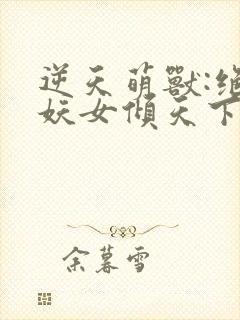 逆天萌獸:絕
妖女傾天下
余暮雪